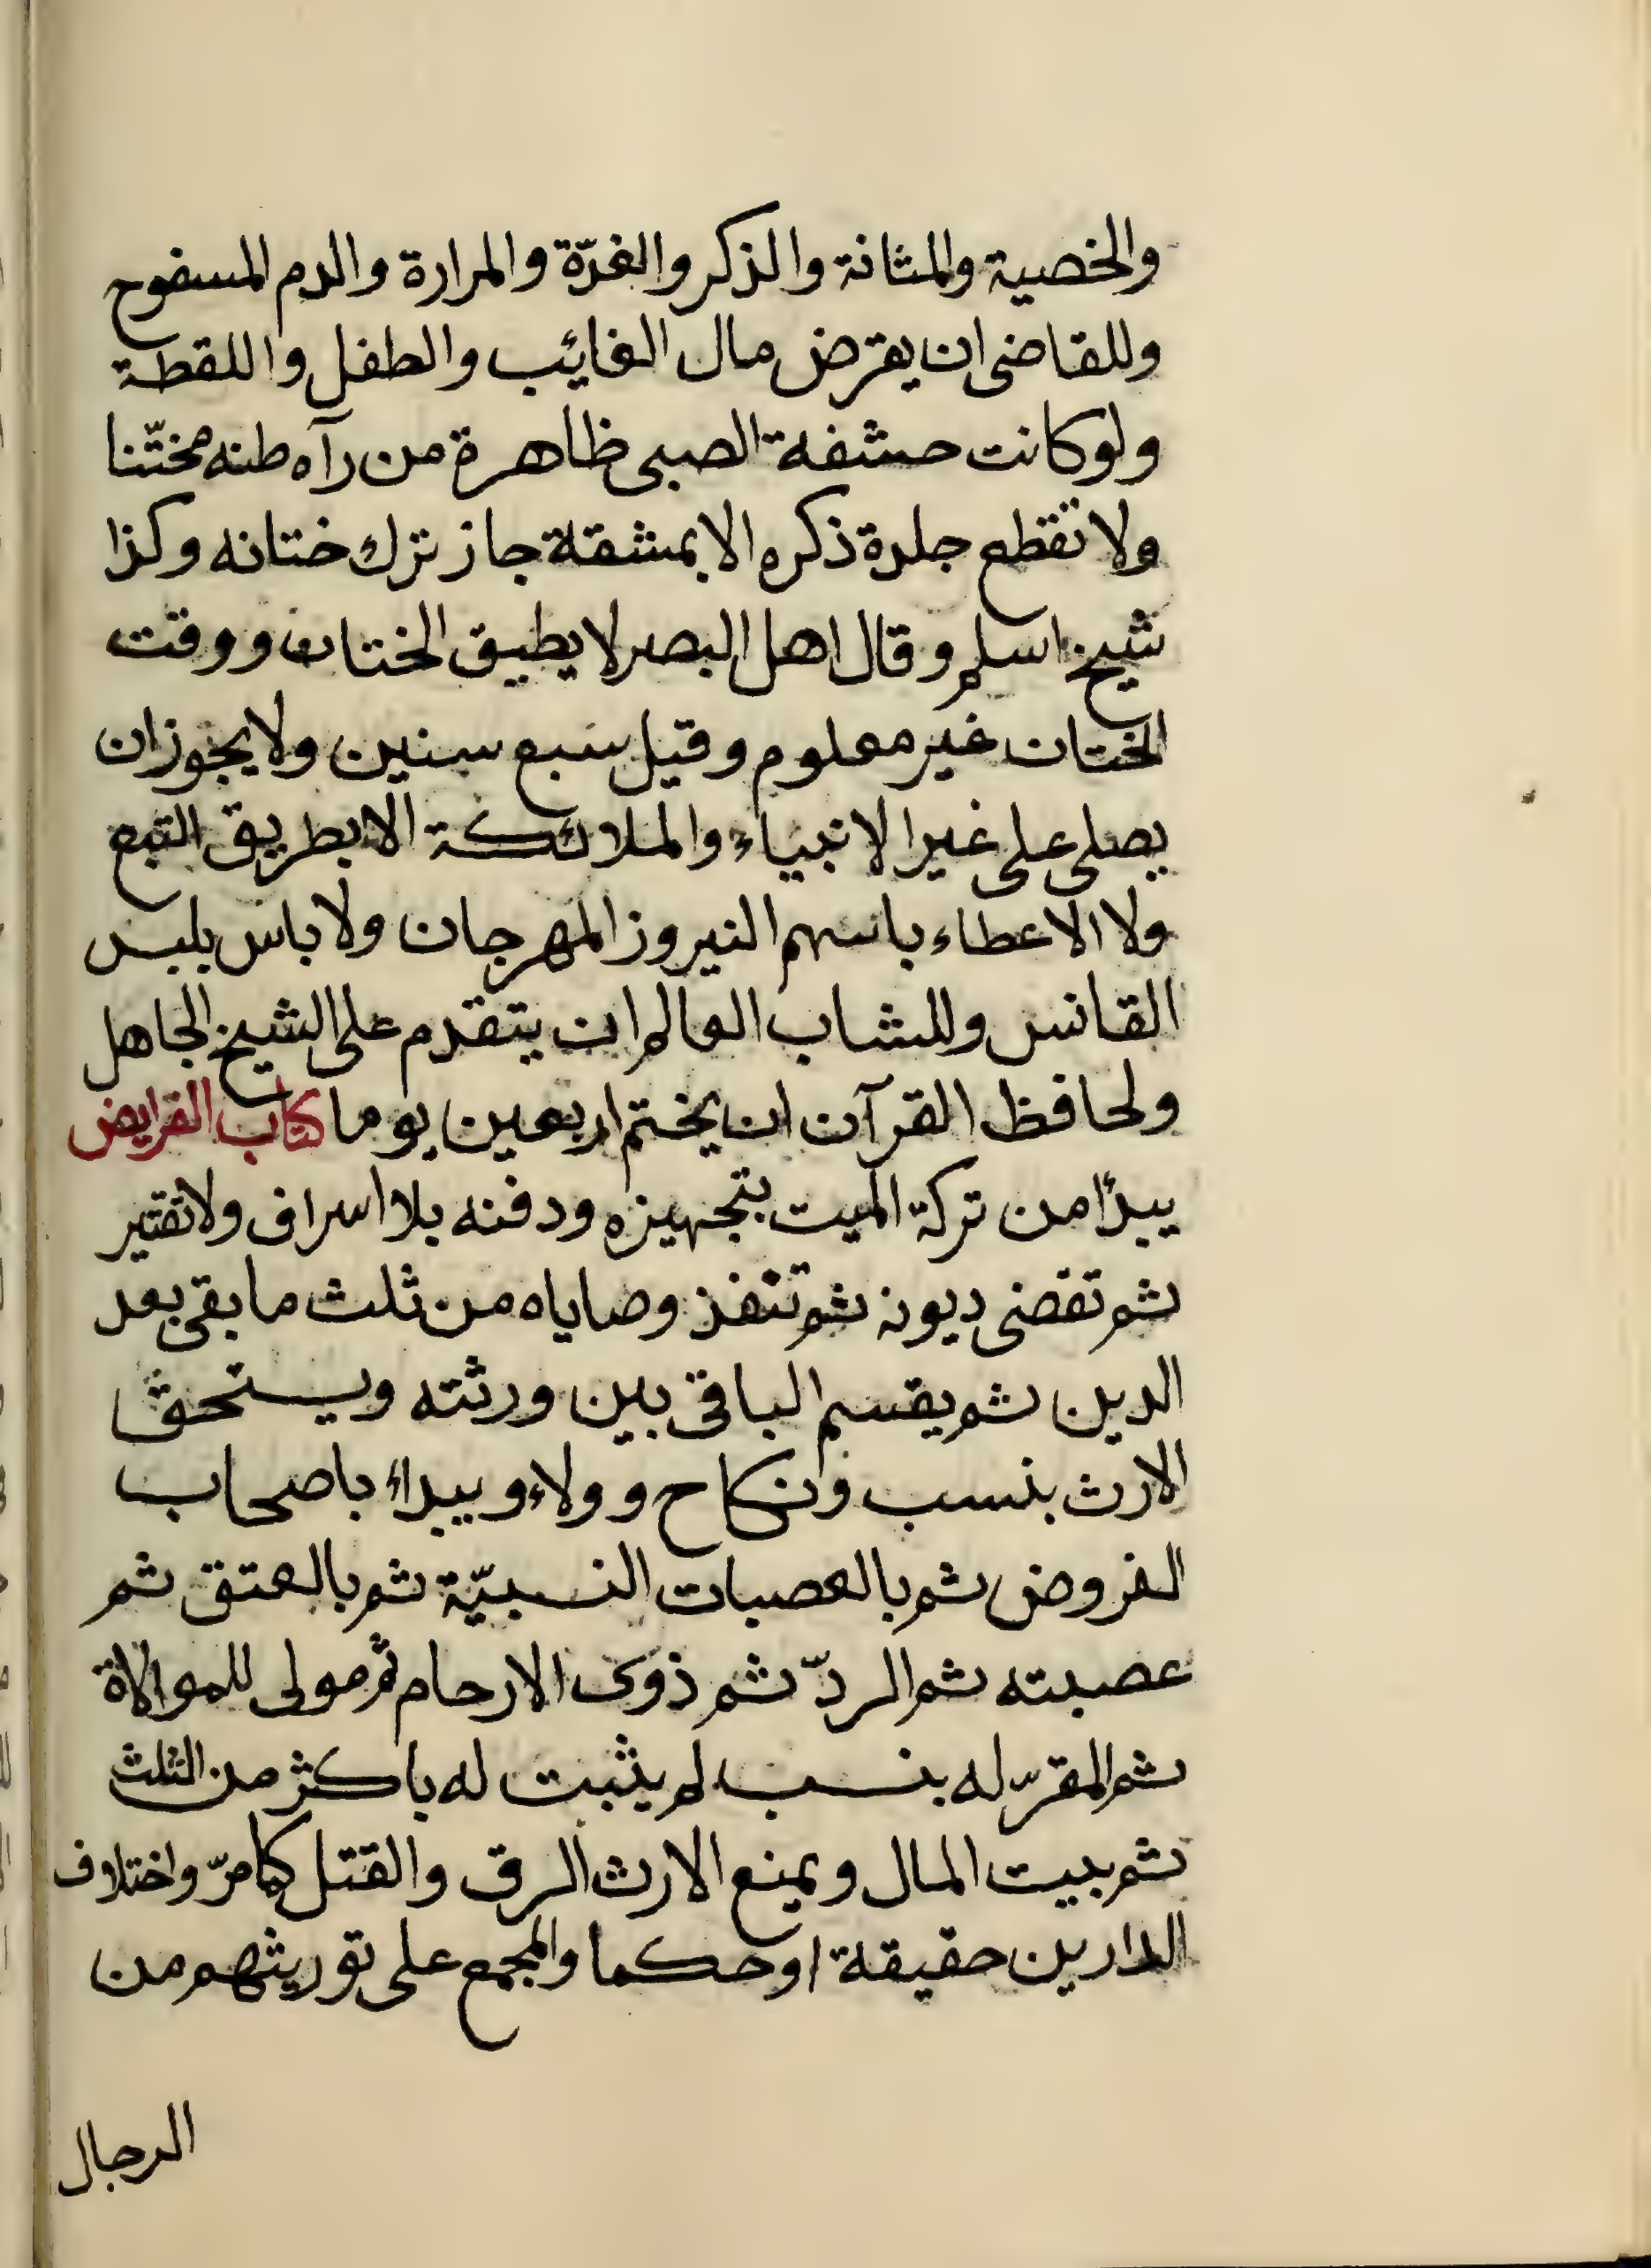 والخصية والمثانة والذكر والغدّة والمرارة والدم المسفوح
وللقاضى ان يقرض مال الغائب والطفل واللقطة
ولو كانت حشفة الصبى ظاهرة من رآه طنه مختّنا
ولا تقطع جلدة ذكره الا بمشقة جاز ترك ختانه وكذا
شيخ اسلم وقال اهل البصر لا يطيق الختان ووقت
الختان غير معلوم وقيل سبع سنين ولا يجوز ان
يصلى على غير الانبياء والملائكة الا بطريق التبع
ولا الاعطاء باسهم النيروز المهرجان ولا باس بلبس
القانس وللشاب العالم ان يتقدم على الشيخ الجاهل
ولحافظ القرآن ان يختم اربعين يوما كتاب الفرايض
يبدأ من تركة الميت بتجهيزه ودفنه بلا اسراف ولا تقتير
ثم تقضى ديونه ثم تنفذ وصاياه من ثلث ما بقى بعد
الدين ثم يقسم الباقى بين ورثته ويستحق
الارث بنسب ونكاح وولاء ويبداء باصحاب
الفروض ثم بالعصبات النسبيّة ثم بالعتق ثم
عصبته ثم الردّ ثم ذوى الارحام ثم مولى للموالاة
ثم المقرّ له بنسب لم يثبت له باكثر من الثلث
ثم بيت المال ويمنع الارث الرق والقتل كما مرّ واختلاف
الدارين حقيقة او حكما والمجمع على توريثهم من
الرجال